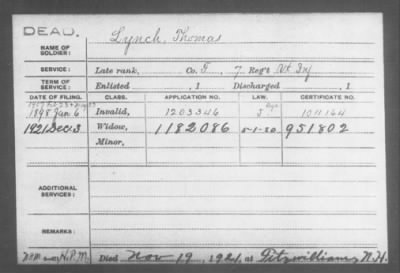 DEAD.
NAME OF SOLDIER: Lynch, Thomas
SERVICE: Late rank, Co. F, 7 Reg't Vt Inf
TERM OF SERVICE: Enlisted , 1 Discharged , 1
DATE OF FILING. CLASS. APPLICATION NO. LAW. CERTIFICATE NO.
1898 Jan 6 Invalid, 1203346 1041164
1921 Dec. 3 Widow, 1182086 5-1-20. 951802
Minor,
ADDITIONAL SERVICES:
REMARKS:
Died Nov 19, 1921, at Fitzwilliam, N.H.